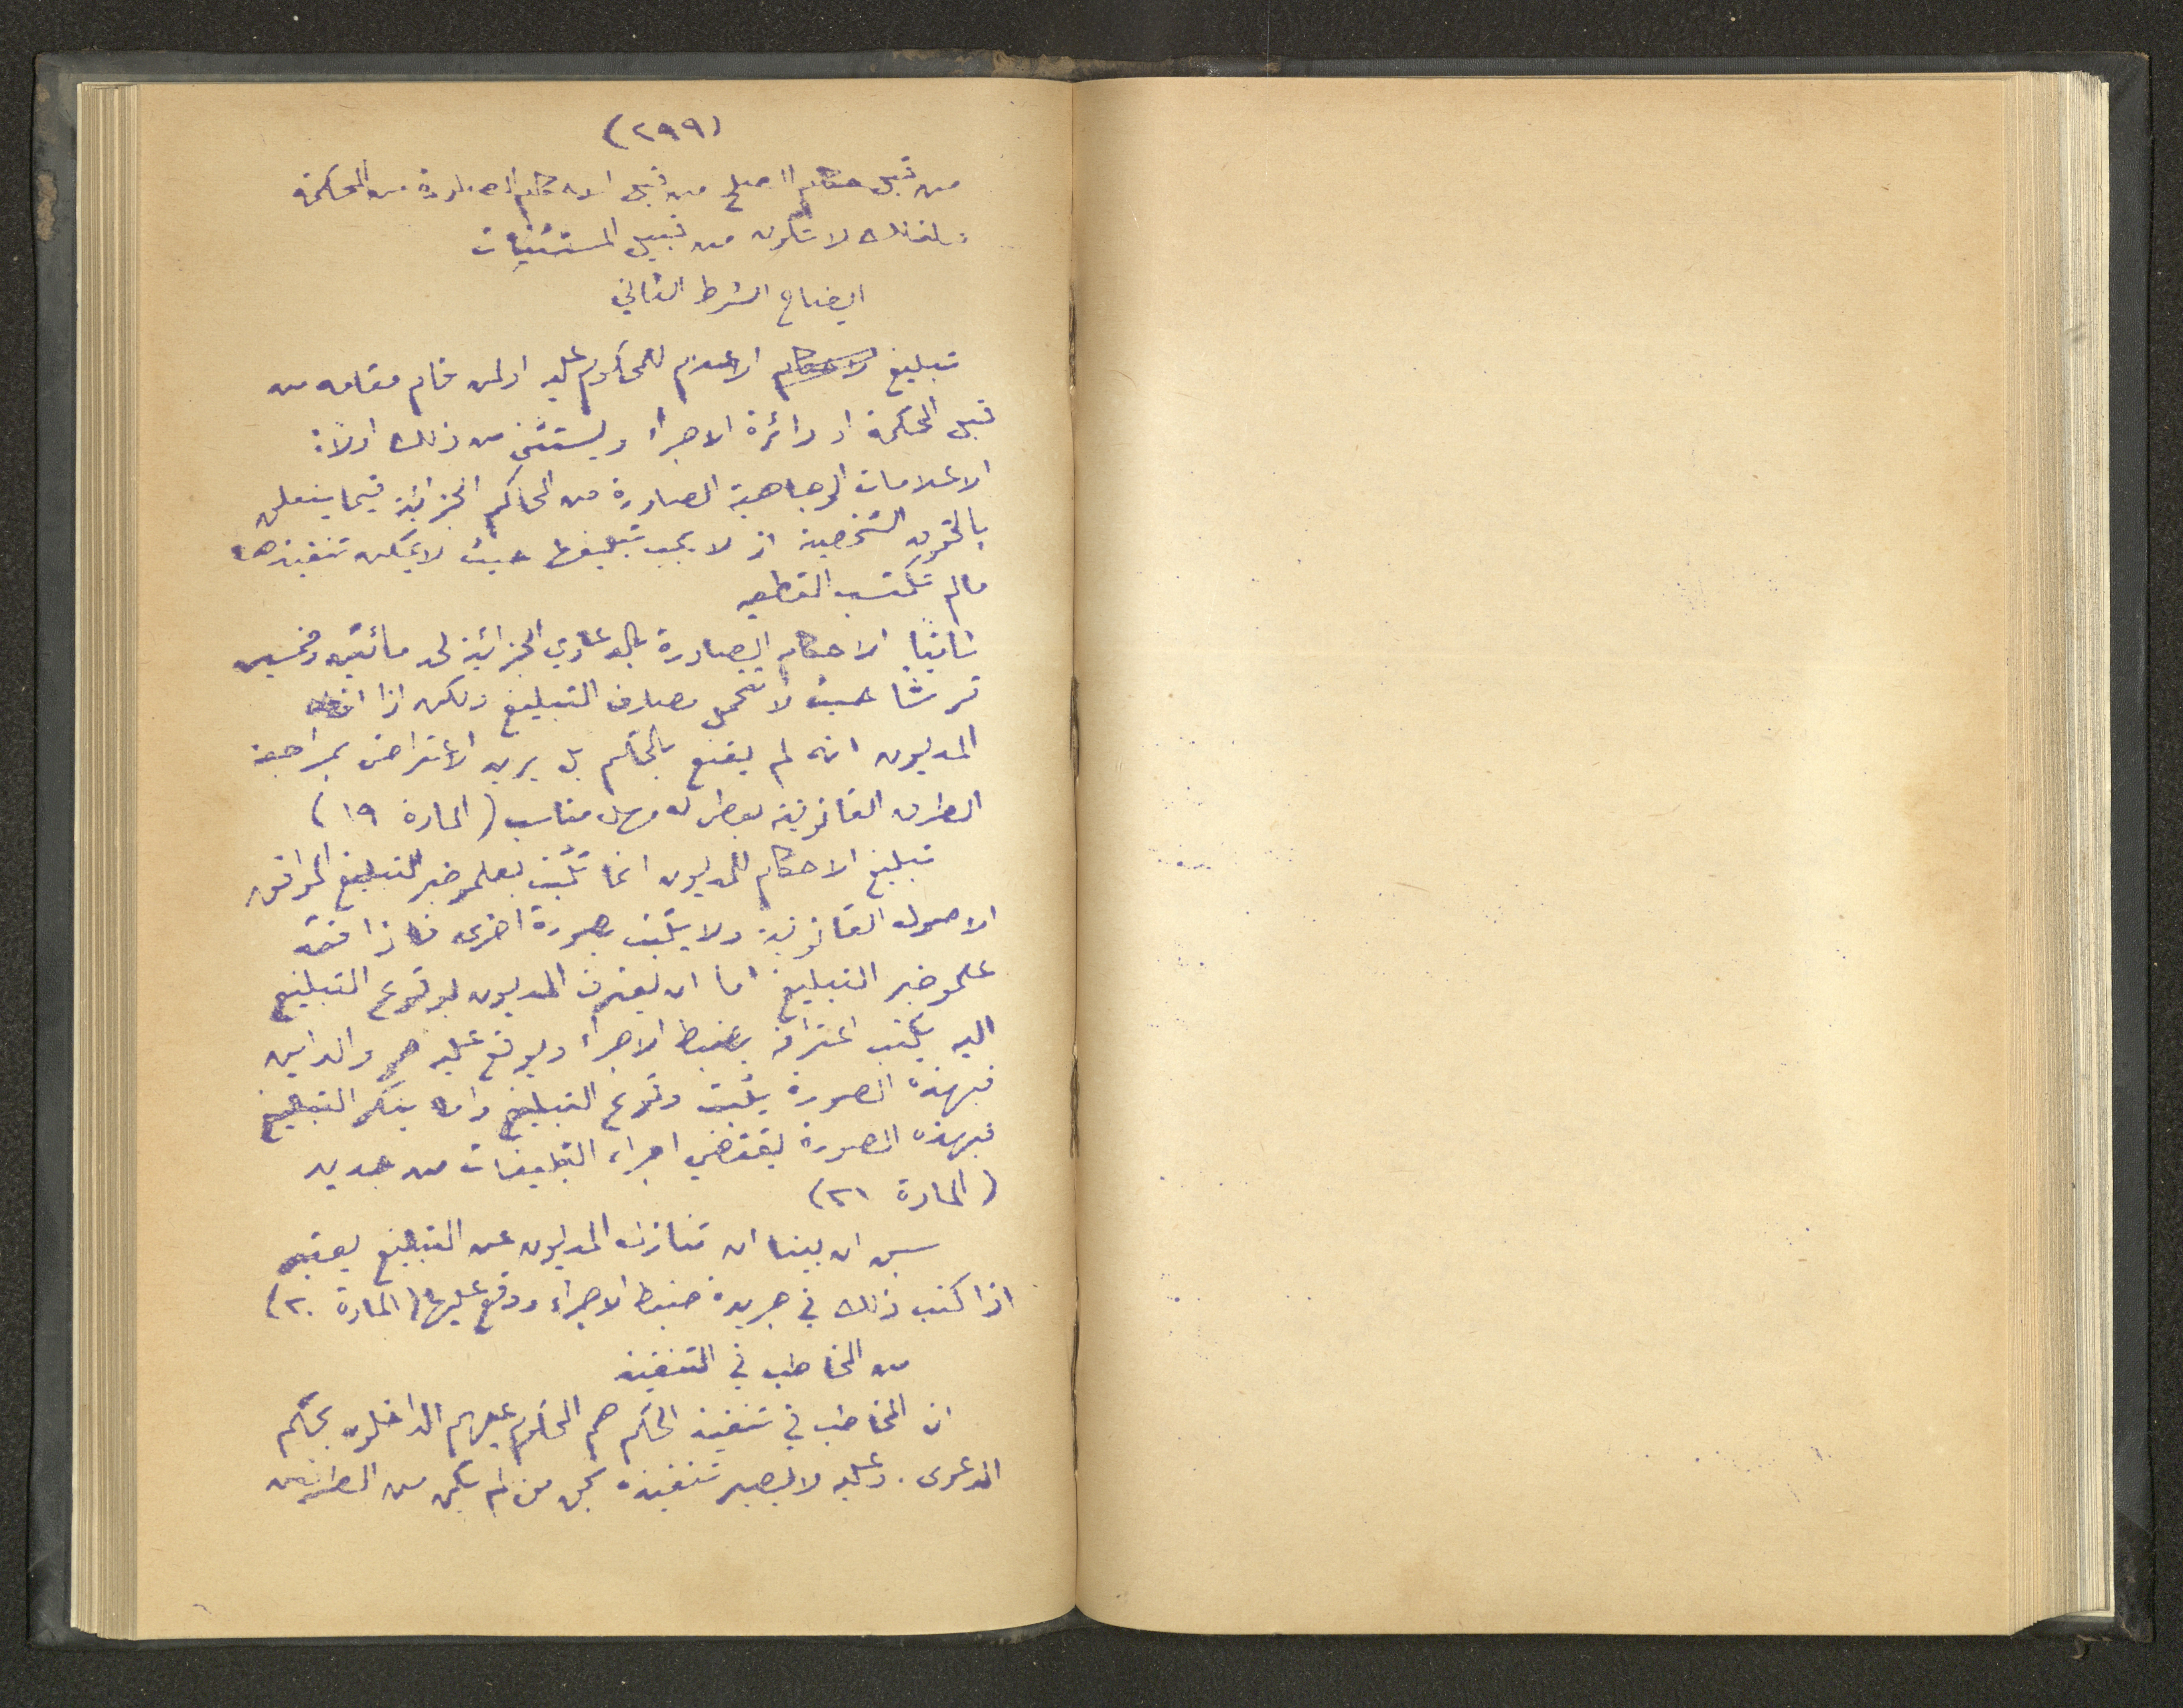 (٢٩٩)
من قبل حكام الصلح من قبل الاحكام الصادرة من المحكمة
لذلك لا تكون من قبيل المستثنيات
ايضاح الشرط الثاني
تبليغ الاعلام للمحكوم عليه او لمن قام مقامه من
قبل المحكمة او دائرة الاجراء ويستثنى من ذلك اولاً:
الاعلامات الوجاهية الصادرة من المحاكم الجزائية فيما يتعلق
بالحقوق الشخصية اذ لا يجب تبليغها حيث لا يمكن تنفيذها
مالم تكتسب القطعيه
ثانيًا الاحكام الصادرة بالدعاوي الجزائية لحد مائتين وخمسين
قرشًا حيث لا تتحمل مصارف التبليغ ولكن اذا افاد
المديون انه لم يقنع بالحكم بل يريد الاعتراض بمراجعة
الطرق القانونية يعطى له مهل مناسب (المادة ١٩)
تبليغ الاحكام للمديون انما تثبت بعلموخبر التبليغ الموافق
الاصول القانونية ولا يثبت بصورة اخرى فاذا فقد
علموخبر التبليغ اما ان يعترف المديون بوقوع التبليغ
اليه يكتب اعترافه بضبط الاجراء ويوقع عليه هو والداين
فبهذه الصورة يثبت وقوع التبليغ واما ينكر التبليغ
فبهذه الصورة يقتضي اجراء التبليغات من جديد
(المادة ٢١)
سبق ان بينا ان تنازل المديون عن التبليغ يعتبر
اذا كتب ذلك في جريدة ضبط الاجراء ووقع عليها (المادة ٢٠)
من المخاطب في التنفيذ
ان المخاطب في تنفيذ الحكم هم المحكوم عليهم الداخلون بحكم
الدعوى. وعليه لا يصير تنفيذه بحق من لم يكن من الطرفين